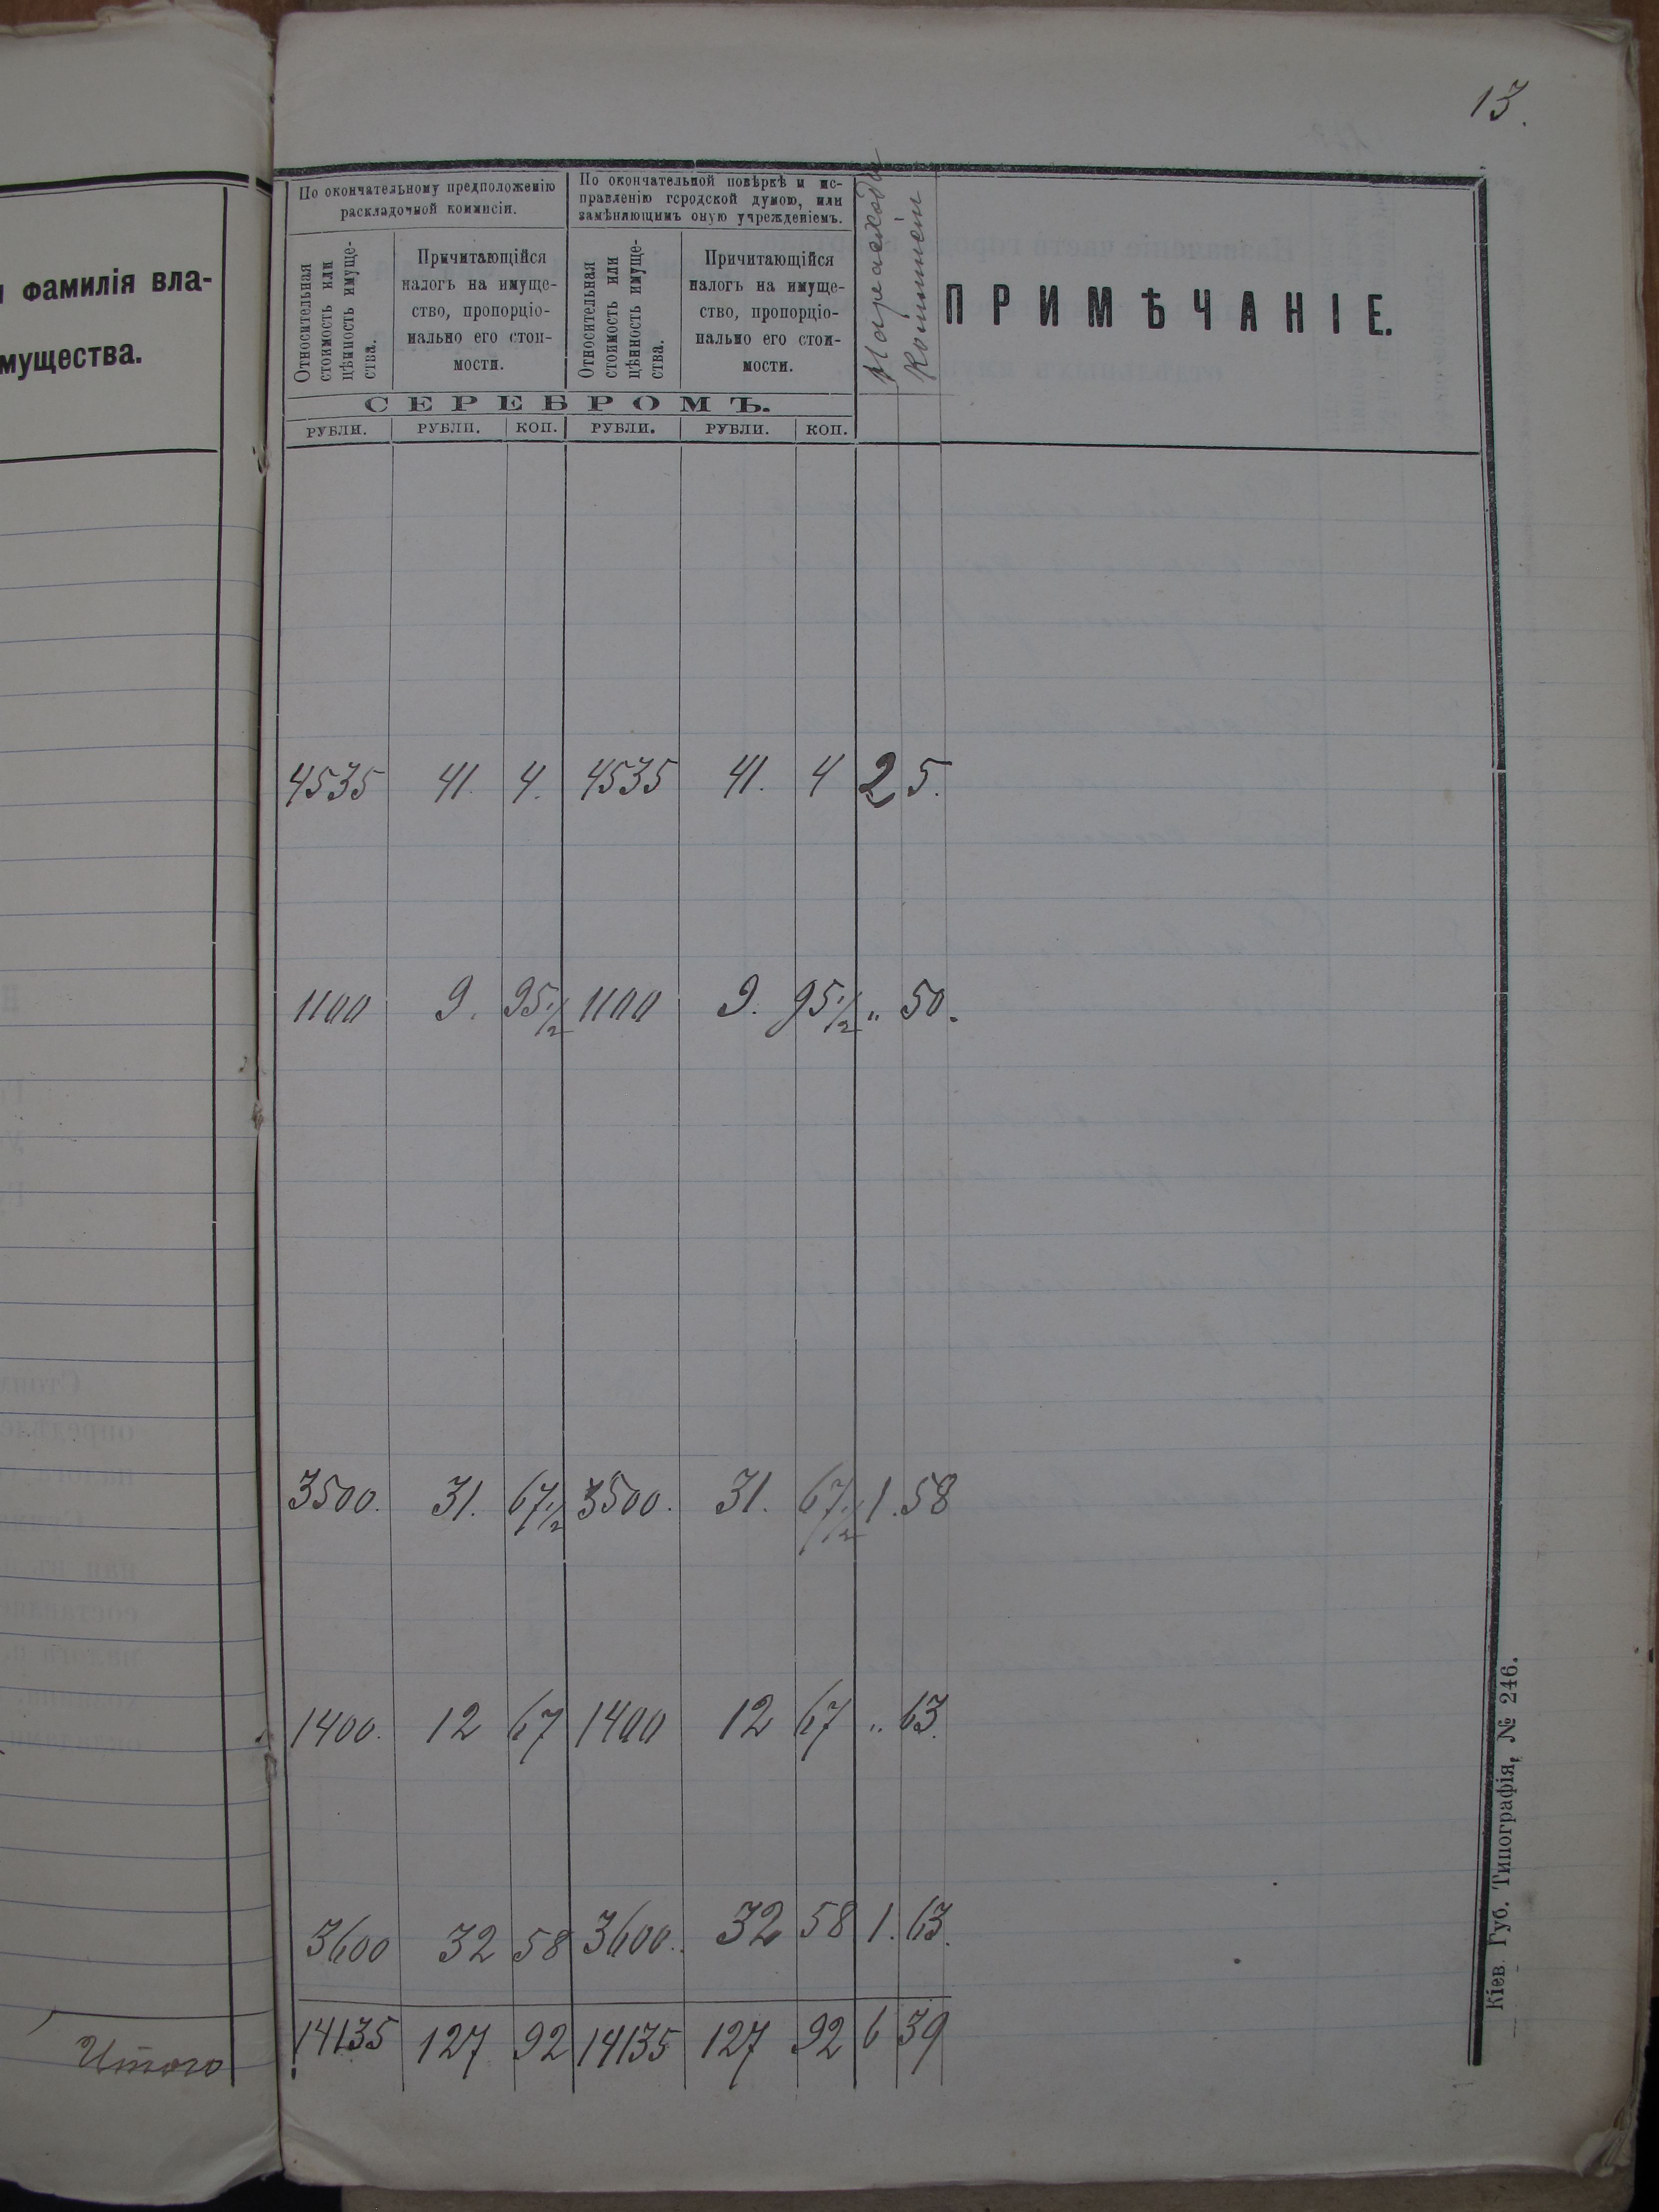 13.
фамилія вла-
мущества.
По окончательному предположенію
раскладочной коммисіи.
По окончательной повѣркѣ и ис-
правленію городской думою, или
замѣняющимъ оную учрежденіемъ.
На расходы
Коммисіи
ПРИМѢЧАНІЕ.
Относительная
стоимость или
цѣнность имуще-
ства.
Причитающійся
налогъ на имуще-
ство, пропорціо-
нально его стои-
мости.
Относительная
стоимость или
цѣнность имуще-
ства.
Причитающійся
налогъ на имуще-
ство, пропорціо-
нально его стои-
мости.
СЕРЕБРОМЪ.
РУБЛИ. РУБЛИ. КОП. РУБЛИ. РУБЛИ. КОП.
4535 41. 4. 4535 41. 4 2 5.
1100 9. 95 1/2 1100 9. 95 1/2 „ 50.
3500. 31. 67 1/2 3500. 31. 67 1/2 1. 58
1400. 12 67 1400 12 67 „ 63.
3600 32 58 3600. 32 58 1. 63.
Итого 14135 127 92 14135 127 92 6 39
Кіев. Губ. Типографія, № 246.